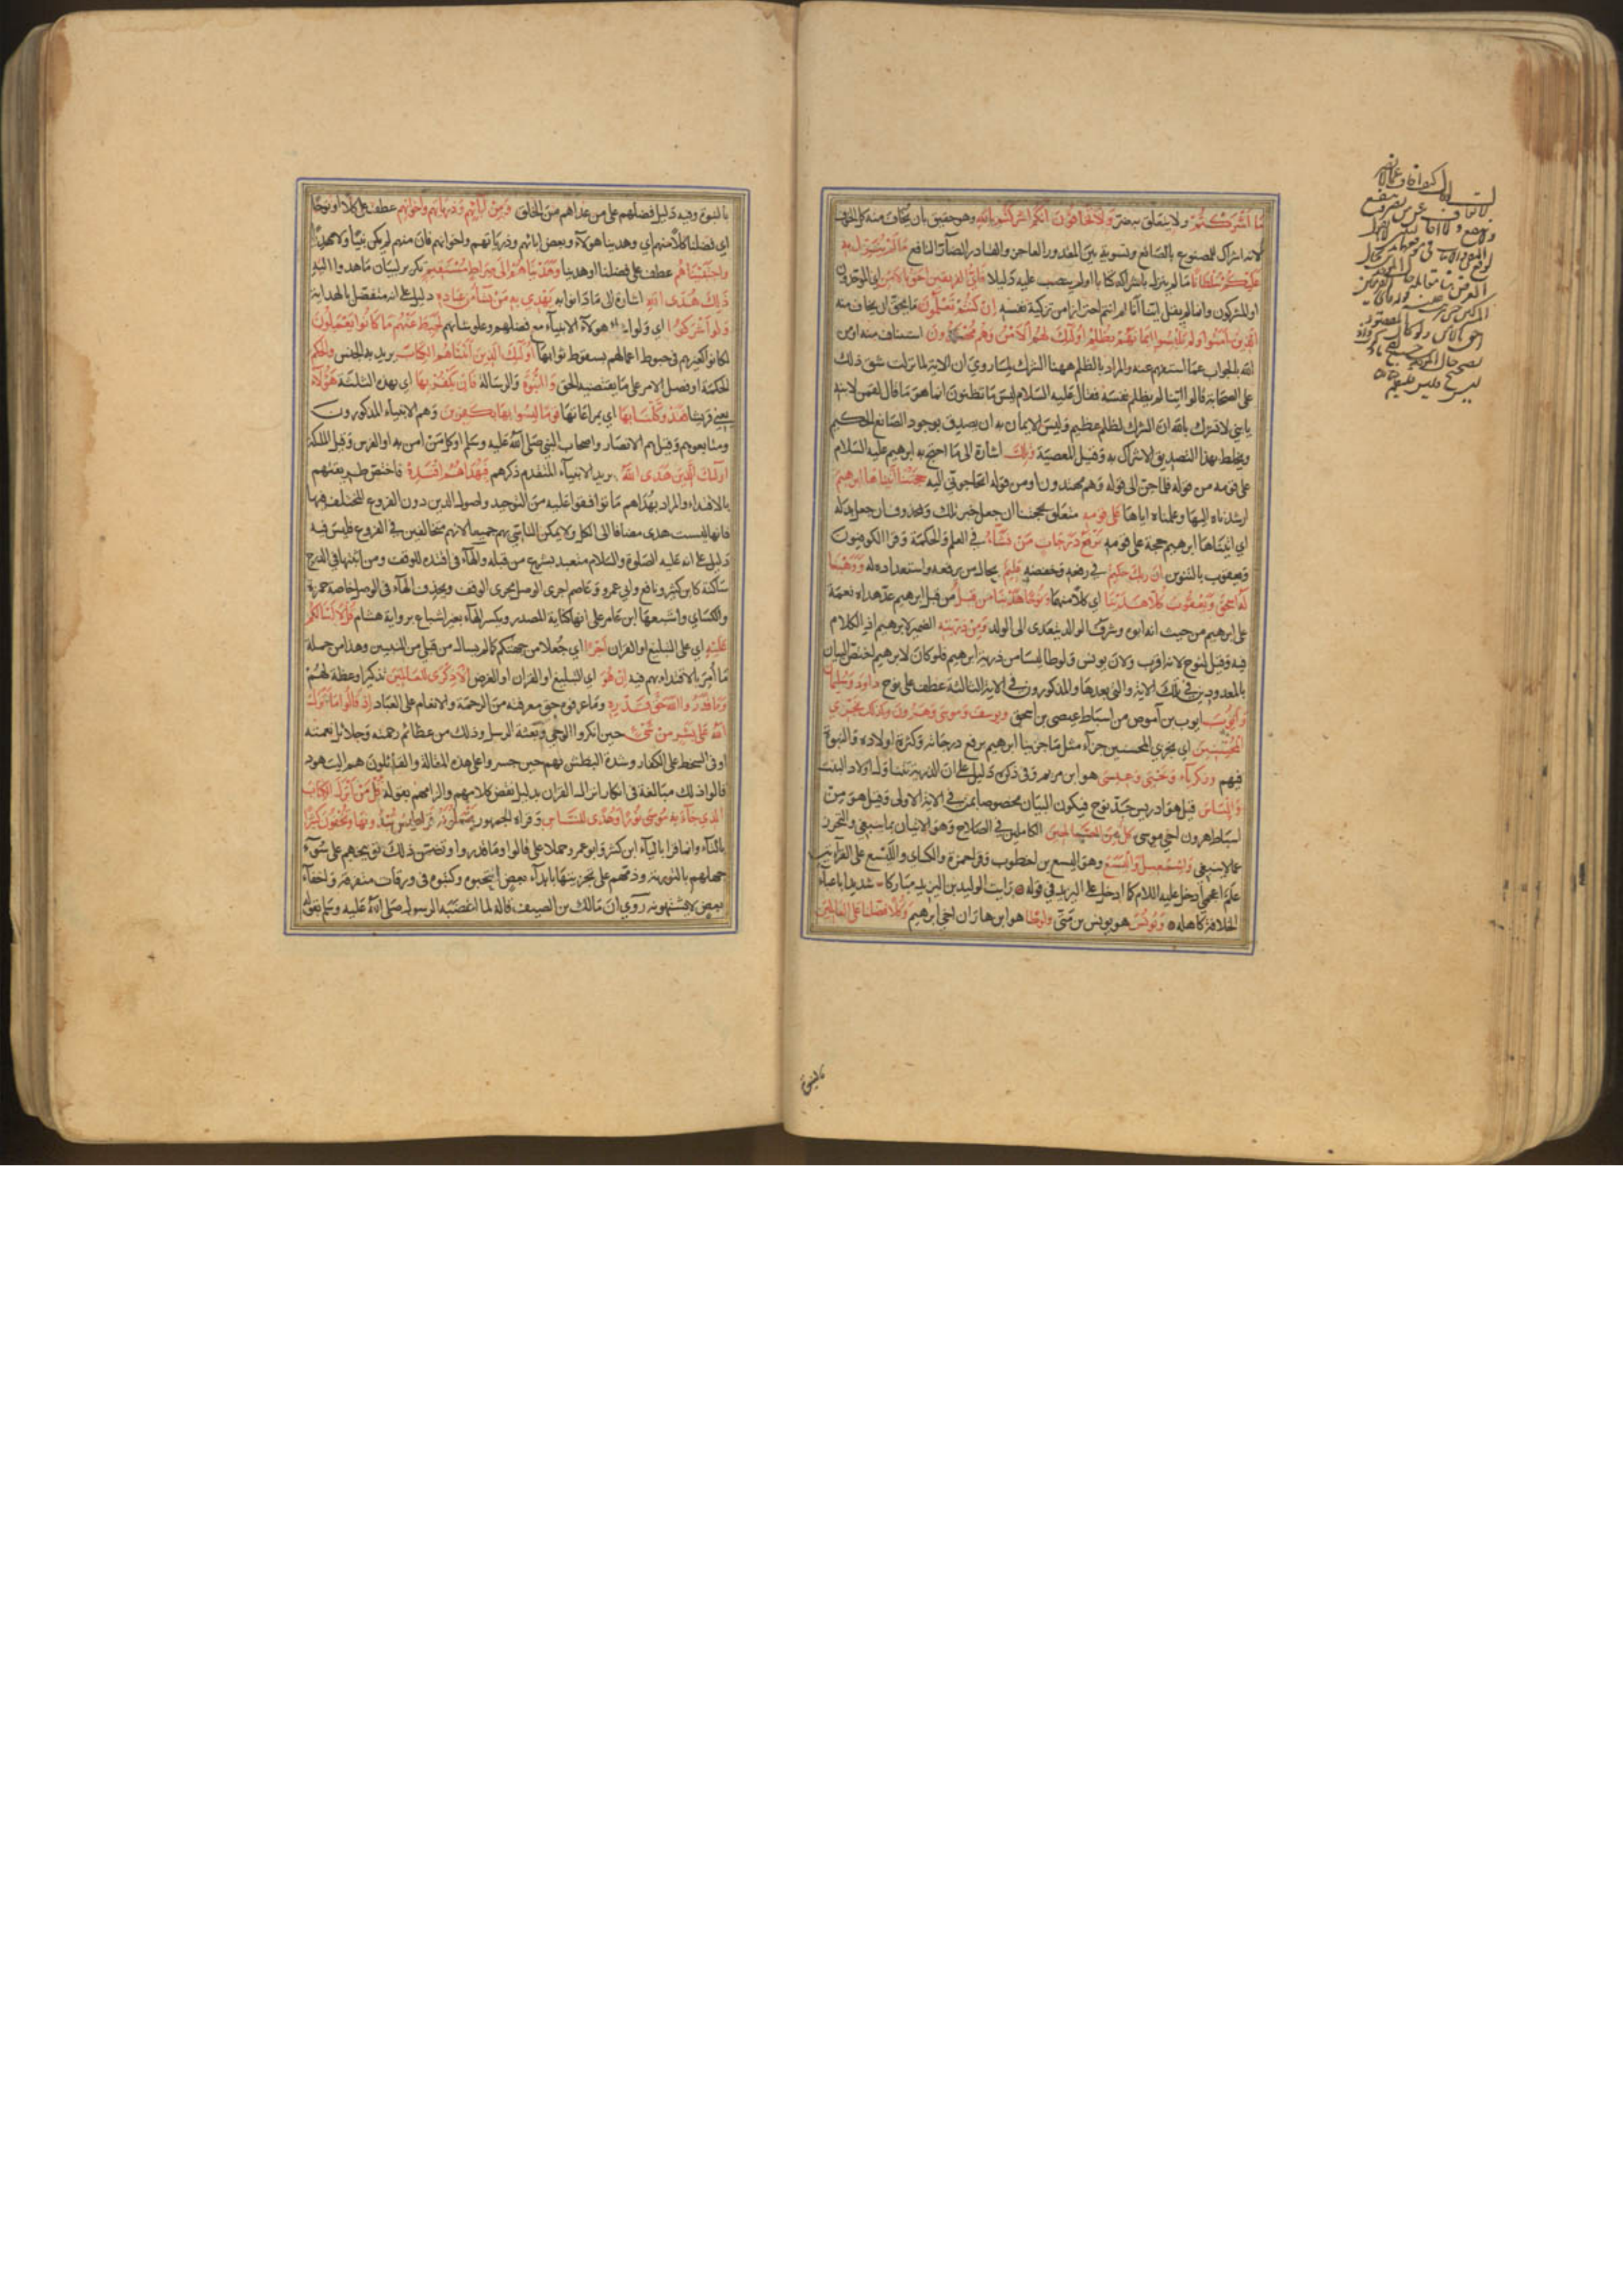 مَا اَشْرَكْتُمْ ولا يتعلق به ضر وَلَا تَخَافُونَ اَنَّكُمْ اَشْرَكْتُمْ بِاللهِ وهو حقيق بان يخاف منه كل الخوف
لانه اشراك للمصنوع بالصانع وتسوية بين المقدور العاجز والقادر الضار النافع مَا لَمْ يُنَزِّلْ بِهِ
عَلَيْكُمْ سُلْطَانًا ما لم ينزل باشراكه كتابا او لم ينصب عليه دليلا فَاَيُّ الْفَرِيقَيْنِ اَحَقُّ بِالْاَمْنِ اي الموحدون
او المشركون وانما لم يقل اينا انا ام انتم احترازا من تزكية نفسه اِنْ كُنْتُمْ تَعْلَمُونَ ما يحق ان يخاف منه
اَلَّذِينَ آمَنُوا وَلَمْ يَلْبِسُوا اِيمَانَهُمْ بِظُلْمٍ اُولٰئِكَ لَهُمُ الْاَمْنُ وَهُمْ مُهْتَدُونَ استيناف منه او من
الله بالجواب عما استفهم عنه والمراد بالظلم ههنا الشرك لما روي ان الاية لما نزلت شق ذلك
على الصحابة فقالوا اينا لم يظلم نفسه فقال عليه السلام ليس ما تظنون انما هو ما قال لقمن لابنه
يا بني لا تشرك بالله ان الشرك لظلم عظيم وليس الايمان به ان يصدق بوجود الصانع الحكيم
ويخلط بهذا التصديق الاشراك به وقيل المعصية وَتِلْكَ اشارة الى ما احتج به ابرهيم عليه السلام
على قومه من قوله فلما جن الى قوله وهم مهتدون او من قوله اتحاجوني اليه حُجَّتُنَا آتَيْنَاهَا اِبْرٰهِيمَ
ارشدناه اليها وعلمناه اياها عَلَى قَوْمِهِ متعلق بحجتنا ان جعل خبر تلك وبمحذوف ان جعل بدله
اي اتيناها ابرهيم حجة على قومه نَرْفَعُ دَرَجَاتٍ مَنْ نَشَاءُ في العلم والحكمة وقرا الكوفيون
ويعقوب بالتنوين اِنَّ رَبَّكَ حَكِيمٌ في رفعه وخفضه عَلِيمٌ بحال من يرفعه واستعداده له وَوَهَبْنَا
لَهُ اِسْحٰقَ وَيَعْقُوبَ كُلًّا هَدَيْنَا اي كلا منهما وَنُوحًا هَدَيْنَا مِنْ قَبْلُ من قبل ابرهيم عد هداه نعمة
على ابرهيم من حيث انه ابوه وشرف الوالد يتعدى الى الولد وَمِنْ ذُرِّيَّتِهِ الضمير لابرهيم اذ الكلام
فيه وقيل لنوح لانه اقرب ولان يونس ولوطا ليسا من ذرية ابرهيم فلو كان لابرهيم اختص البيان
بالمعدودين في تلك الاية والتي بعدها والمذكورون في الاية الثالثة عطف على نوح دَاوُدَ وَسُلَيْمٰنَ
وَاَيُّوبَ ايوب بن آموص من اسباط عيص بن اسحق وَيُوسُفَ وَمُوسَى وَهٰرُونَ وَكَذٰلِكَ نَجْزِي
الْمُحْسِنِينَ اي نجزي المحسنين جزاء مثل ما جزينا ابرهيم برفع درجاته وكثرة اولاده والنبوة
فيهم وَزَكَرِيَّاءَ وَيَحْيَى وَعِيسَى هو ابن مريم وفي ذكره دليل على ان الذرية تتناول اولاد البنت
وَاِلْيَاسَ قيل هو ادريس جد نوح فيكون البيان مخصوصا بمن في الاية الاولى وقيل هو من
اسباط هرون اخي موسى كُلٌّ مِنَ الصَّالِحِينَ الكاملين في الصلاح وهو الاتيان بما ينبغي والتحرز
عما لا ينبغي وَاِسْمٰعِيلَ وَالْيَسَعَ وهو اليسع بن اخطوب وقرا حمزة والكساي والليسع على القراءتين
علم اعجمي ادخل عليه اللام كما ادخل على اليزيد في قوله رايت الوليد بن اليزيد مباركا شديدا باعباء
الخلافة كاهله وَيُونُسَ هو يونس بن متى وَلُوطًا هو ابن هاران اخي ابرهيم وَكُلًّا فَضَّلْنَا عَلَى الْعَالَمِينَ
بالنبوة
بالنبوة وفيه دليل فضلهم على من عداهم من الخلق وَمِنْ آبَائِهِمْ وَذُرِّيَّاتِهِمْ وَاِخْوَانِهِمْ عطف على كلا او نوحا
اي فضلنا كلا منهم اي وهدينا هؤلاء وبعض ابائهم وذرياتهم واخوانهم فان منهم لم يكن نبيا ولا مهديا
وَاجْتَبَيْنَاهُمْ عطف على فضلنا او هدينا وَهَدَيْنَاهُمْ اِلَى صِرَاطٍ مُسْتَقِيمٍ تكرير لبيان ما هدوا اليه
ذٰلِكَ هُدَى اللهِ اشارة الى ما دانوا به يَهْدِي بِهِ مَنْ يَشَاءُ مِنْ عِبَادِهِ دليل على انه متفضل بالهداية
وَلَوْ اَشْرَكُوا اي ولو اشرك هؤلاء الانبياء مع فضلهم وعلو شانهم لَحَبِطَ عَنْهُمْ مَا كَانُوا يَعْمَلُونَ
لكانوا كغيرهم في حبوط اعمالهم بسقوط ثوابها اُولٰئِكَ الَّذِينَ آتَيْنَاهُمُ الْكِتَابَ يريد به الجنس وَالْحُكْمَ
الحكمة او فصل الامر على ما يقتضيه الحق وَالنُّبُوَّةَ والرسالة فَاِنْ يَكْفُرْ بِهَا اي بهذه الثلثة هٰؤُلَاءِ
يعني قريشا فَقَدْ وَكَّلْنَا بِهَا اي بمراعاتها قَوْمًا لَيْسُوا بِهَا بِكَافِرِينَ وهم الانبياء المذكورون
ومتابعوهم وقيل هم الانصار واصحاب النبي صلى الله عليه وسلم او كل من امن به او الفرس وقيل الملئكة
اُولٰئِكَ الَّذِينَ هَدَى اللهُ يريد الانبياء المتقدم ذكرهم فَبِهُدَاهُمُ اقْتَدِهْ فاختص طريقتهم
بالاقتداء والمراد بهداهم ما توافقوا عليه من التوحيد واصول الدين دون الفروع المختلف فيها
فانها ليست هدى مضافا الى الكل ولا يمكن التاسي بهم جميعا لانهم متخالفين في الفروع فليس فيه
دليل على انه عليه الصلوة والسلام متعبد بشرع من قبله والهاء في اقتده للوقف ومن اثبتها في الدرج
ساكنة كابن كثير ونافع وابي عمرو وعاصم اجرى الوصل مجرى الوقف ويحذف الهاء في الوصل خاصة حمزة
والكساي واشبعها ابن عامر على انها كناية المصدر وبكسر الهاء بغير اشباع برواية هشام قُلْ لَا اَسْاَلُكُمْ
عَلَيْهِ اي على التبليغ او القران اَجْرًا اي جعلا من جهتكم كما لم يسال من قبلي من النبيين وهذا من جملة
ما امر بالاقتداء بهم فيه اِنْ هُوَ اي التبليغ او القران او الغرض اِلَّا ذِكْرَى لِلْعَالَمِينَ تذكيرا وعظة لهم
وَمَا قَدَرُوا اللهَ حَقَّ قَدْرِهِ وما عرفوه حق معرفته من الرحمة والانعام على العباد اِذْ قَالُوا مَا اَنْزَلَ
اللهُ عَلَى بَشَرٍ مِنْ شَيْءٍ حين انكروا الوحي وبعثة الرسل وذلك من عظائم رحمته وجلائل نعمته
او في السخط على الكفار وشدة البطش بهم حين جسروا على هذه المقالة والقائلون هم اليهود
قالوا ذلك مبالغة في انكار انزال القران بدليل نقض كلامهم والزامهم بقوله قُلْ مَنْ اَنْزَلَ الْكِتَابَ
الَّذِي جَاءَ بِهِ مُوسَى نُورًا وَهُدًى لِلنَّاسِ وقراءة الجمهور تَجْعَلُونَهُ قَرَاطِيسَ تُبْدُونَهَا وَتُخْفُونَ كَثِيرًا
بالتاء وانما قرا بالياء ابن كثير وابو عمرو حملا على قالوا وما قدروا وتضمن ذلك توبيخهم على سوء
جهلهم بالتورية وذمهم على تجزيتها بابداء بعض انتخبوه وكتبوه في ورقات متفرقة واخفاء
بعض لا يشتهونه روي ان مالك بن الصيف قاله لما اغضبه الرسول صلى الله عليه وسلم بقوله